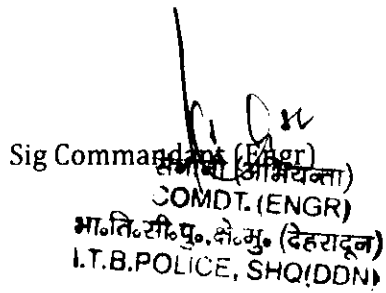 Sig Commandant (Engr)
सेनानी (अभियन्ता)
COMDT. (ENGR)
भा॰ति॰सी॰पु॰, क्षे॰मु॰ (देहरादून)
I.T.B.POLICE, SHQ(DDN)